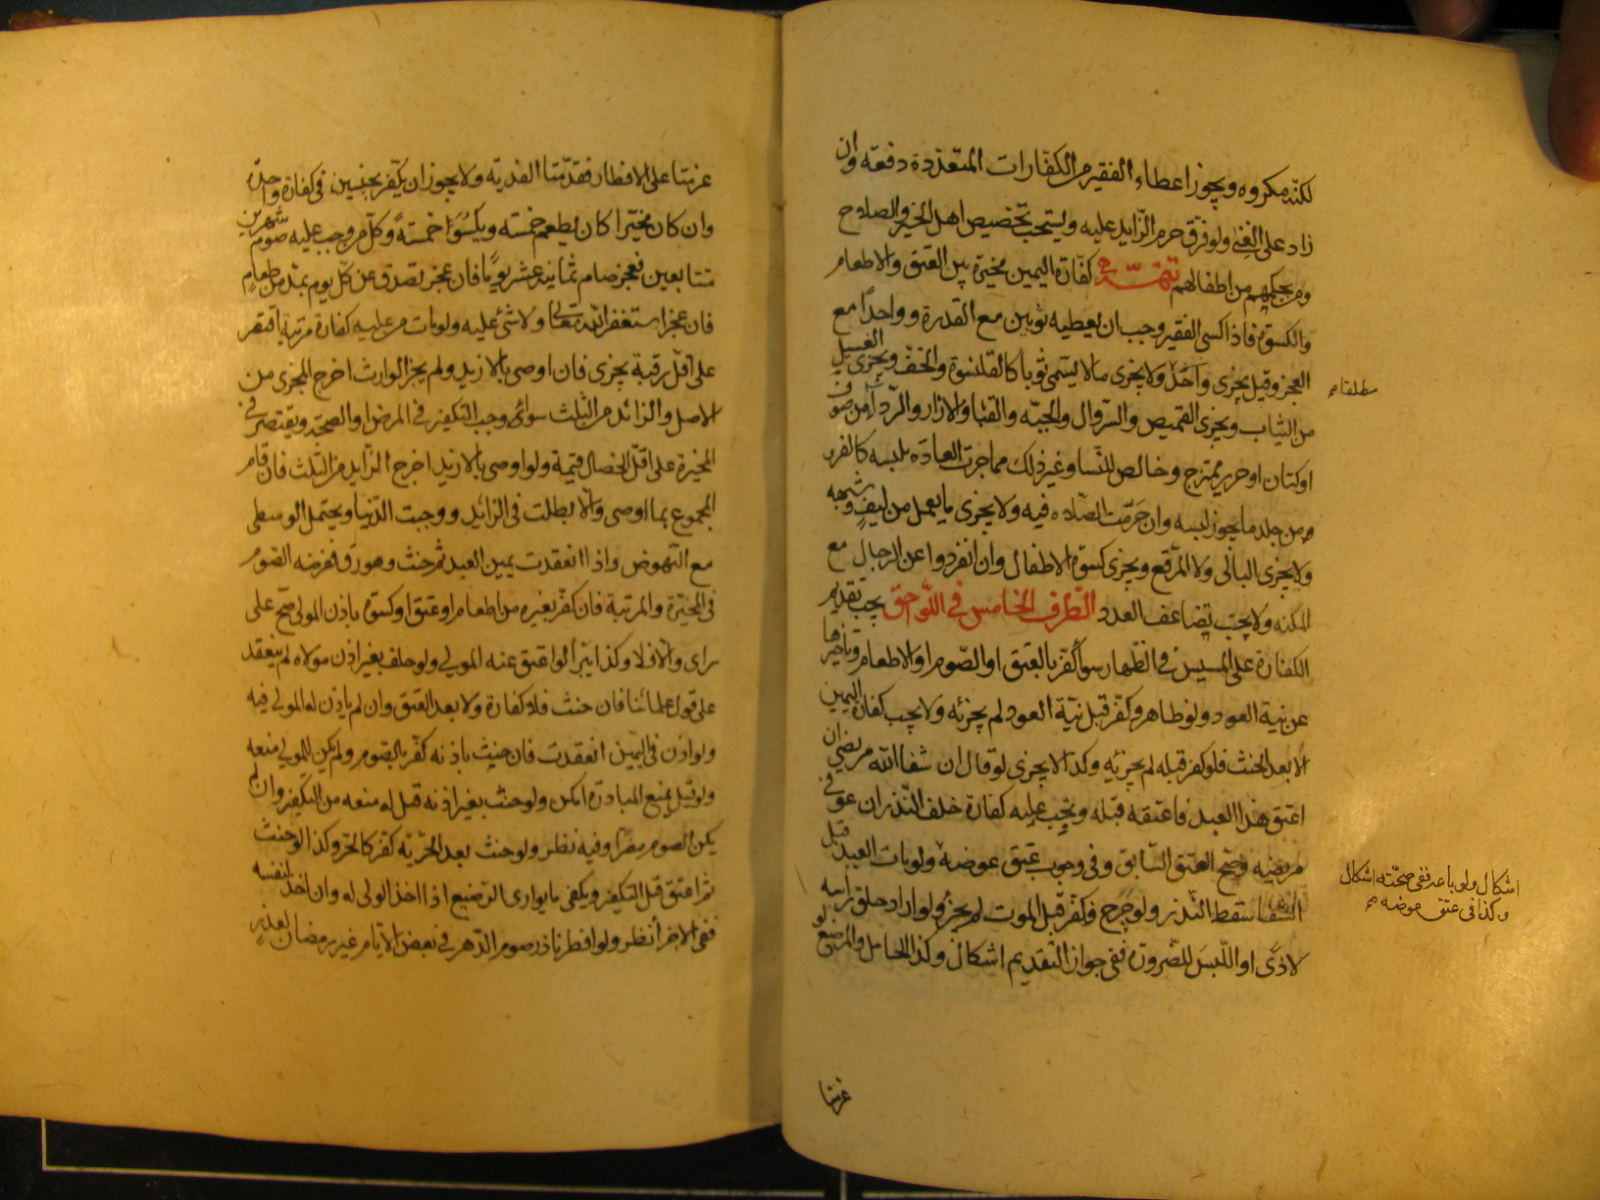 لكنه مكروه ويجوز اعطاء الفقير من الكفارات المتعددة دفعة وان
زاد على الغنى ولو فرق حرم الزايد عليه ويستحب تخصيص اهل الخير والصلاح
ومن بحكمهم من اطفالهم تتمة كفارة اليمين مخيرة بين العتق والاطعام
والكسوة فاذا كسى الفقير وجب ان يعطيه ثوبين مع القدرة وواحدا مع
العجز وقيل يجزى واحد ولا يجزى مالا يسمى ثوبا كالقلنسوة والخف ويجزى الغسيل
مطلقا م
من الثياب ويجزى القميص والسروال والجبه والقبا والازار والردآء من صوف
او كتان او حرير ممتزج وخالص للنسا وغير ذلك مما جرت العادة بلبسه كالفرو
ومن جلد ما يجوز لبسه وان حرمت الصلاه فيه ولا يجزى ما يعمل من ليف وشبهه
ولا يجزى البالى ولا المرقع ويجزى كسوة الاطفال وان انفردوا عن الرجال مع
المكنه ولا يجب تضاعف العدد الطرف الخامس في اللواحق يجب تقديم
الكفارة على المسيس في الظهار سوآ كفر بالعتق او الصوم او الاطعام وتاخيرها
عن نية العود ولو ظاهر وكفر قبل نية العود لم يجزئه ولا يجب كفارة اليمين
الا بعد الحنث فلو كفر قبله لم يجزئه وكذا لا يجزى لو قال ان شفا الله مريضى ان
اعتق هذا العبد فاعتقه قبله وتجب عليه كفارة خلف النذر ان عوفى
مريضه وصح العتق السابق وفى وجوب عتق عوضه ولو مات العبد قبل
اشكال ولو باعه ففى صحته اشكال
وكذا فى عتق عوضه م
الشفا سقط النذر ولو جرح فكفر قبل الموت لم يجز ولو اراد حلق راسه
لاذى او اللبس للضرورة ففى جواز التقديم اشكال وكذا الحامل والمرضع لو
عزمتا
عزمتا على الافطار فقدمتا الفدية ولا يجوز ان يكفر بجنسين فى كفارة واحدة
وان كان مخيرا كان يطعم خمسة ويكسو خمسة وكل من وجب عليه صوم شهرين
متتابعين فعجز صام ثمانية عشر يوما فان عجز تصدق عن كل يوم بمد من طعام
فان عجز استغفر الله تعالى ولا شئ عليه ولو مات من عليه كفارة مرتبة اقتصر
على اقل رقبة يجزى فان اوصى بالازيد ولم يجز الوارث اخرج المجزى من
الاصل والزائد من الثلث سوآء وجب التكفير فى المرض او الصحة ويقتصر فى
المخيرة على اقل الخصال قيمة ولو اوصى بالازيد اخرج الزايد من الثلث فان قام
المجموع بما اوصى والا بطلت فى الزائد ووجبت الدنيا ويحتمل الوسطى
مع النهوض واذا انعقدت يمين العبد ثم حنث وهو رق ففرضه الصوم
فى المخيرة والمرتبة فان كفر بغيره من اطعام او عتق او كسوة باذن المولى صح على
راى والا فلا وكذا يبرا لو اعتق عنه المولى ولو حلف بغير اذن مولاه لم ينعقد
على قول علمائنا فان حنث فلا كفارة ولا بعد العتق وان لم ياذن له المولى فيه
ولو اذن فى اليمين انعقدت فان حنث باذنه كفر بالصوم ولم يكن للمولى منعه
ولو قيل بمنع المبادرة امكن ولو حنث بغير اذنه قيل له منعه من التكفير وان لم
يكن الصوم مضرا وفيه نظر ولو حنث بعد الحرية كفر كالحر وكذا لو حنث
ثم اعتق قبل التكفير ويكفى ما يوارى الرضيع اذا اخذ الولى له وان اخذ لنفسه
ففى الاجزأ نظر ولو افطر ناذر صوم الدهر فى بعض الايام غير رمضان لعذر